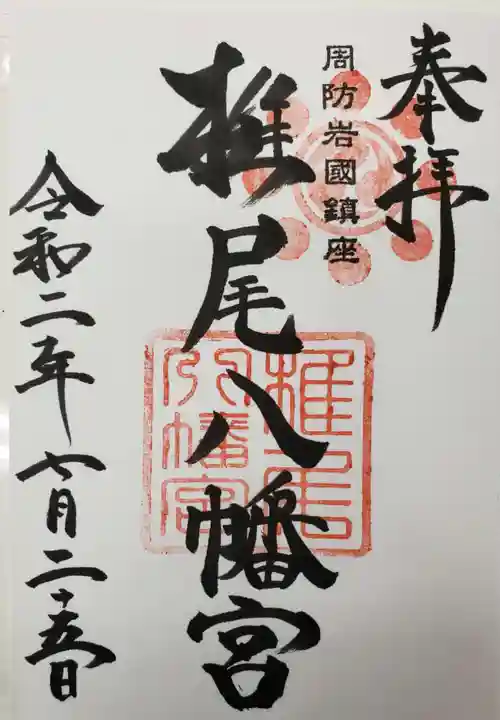 奉拝
周防岩國鎮座
椎尾八幡宮
椎尾
八幡宮
令和二年七月二十五日